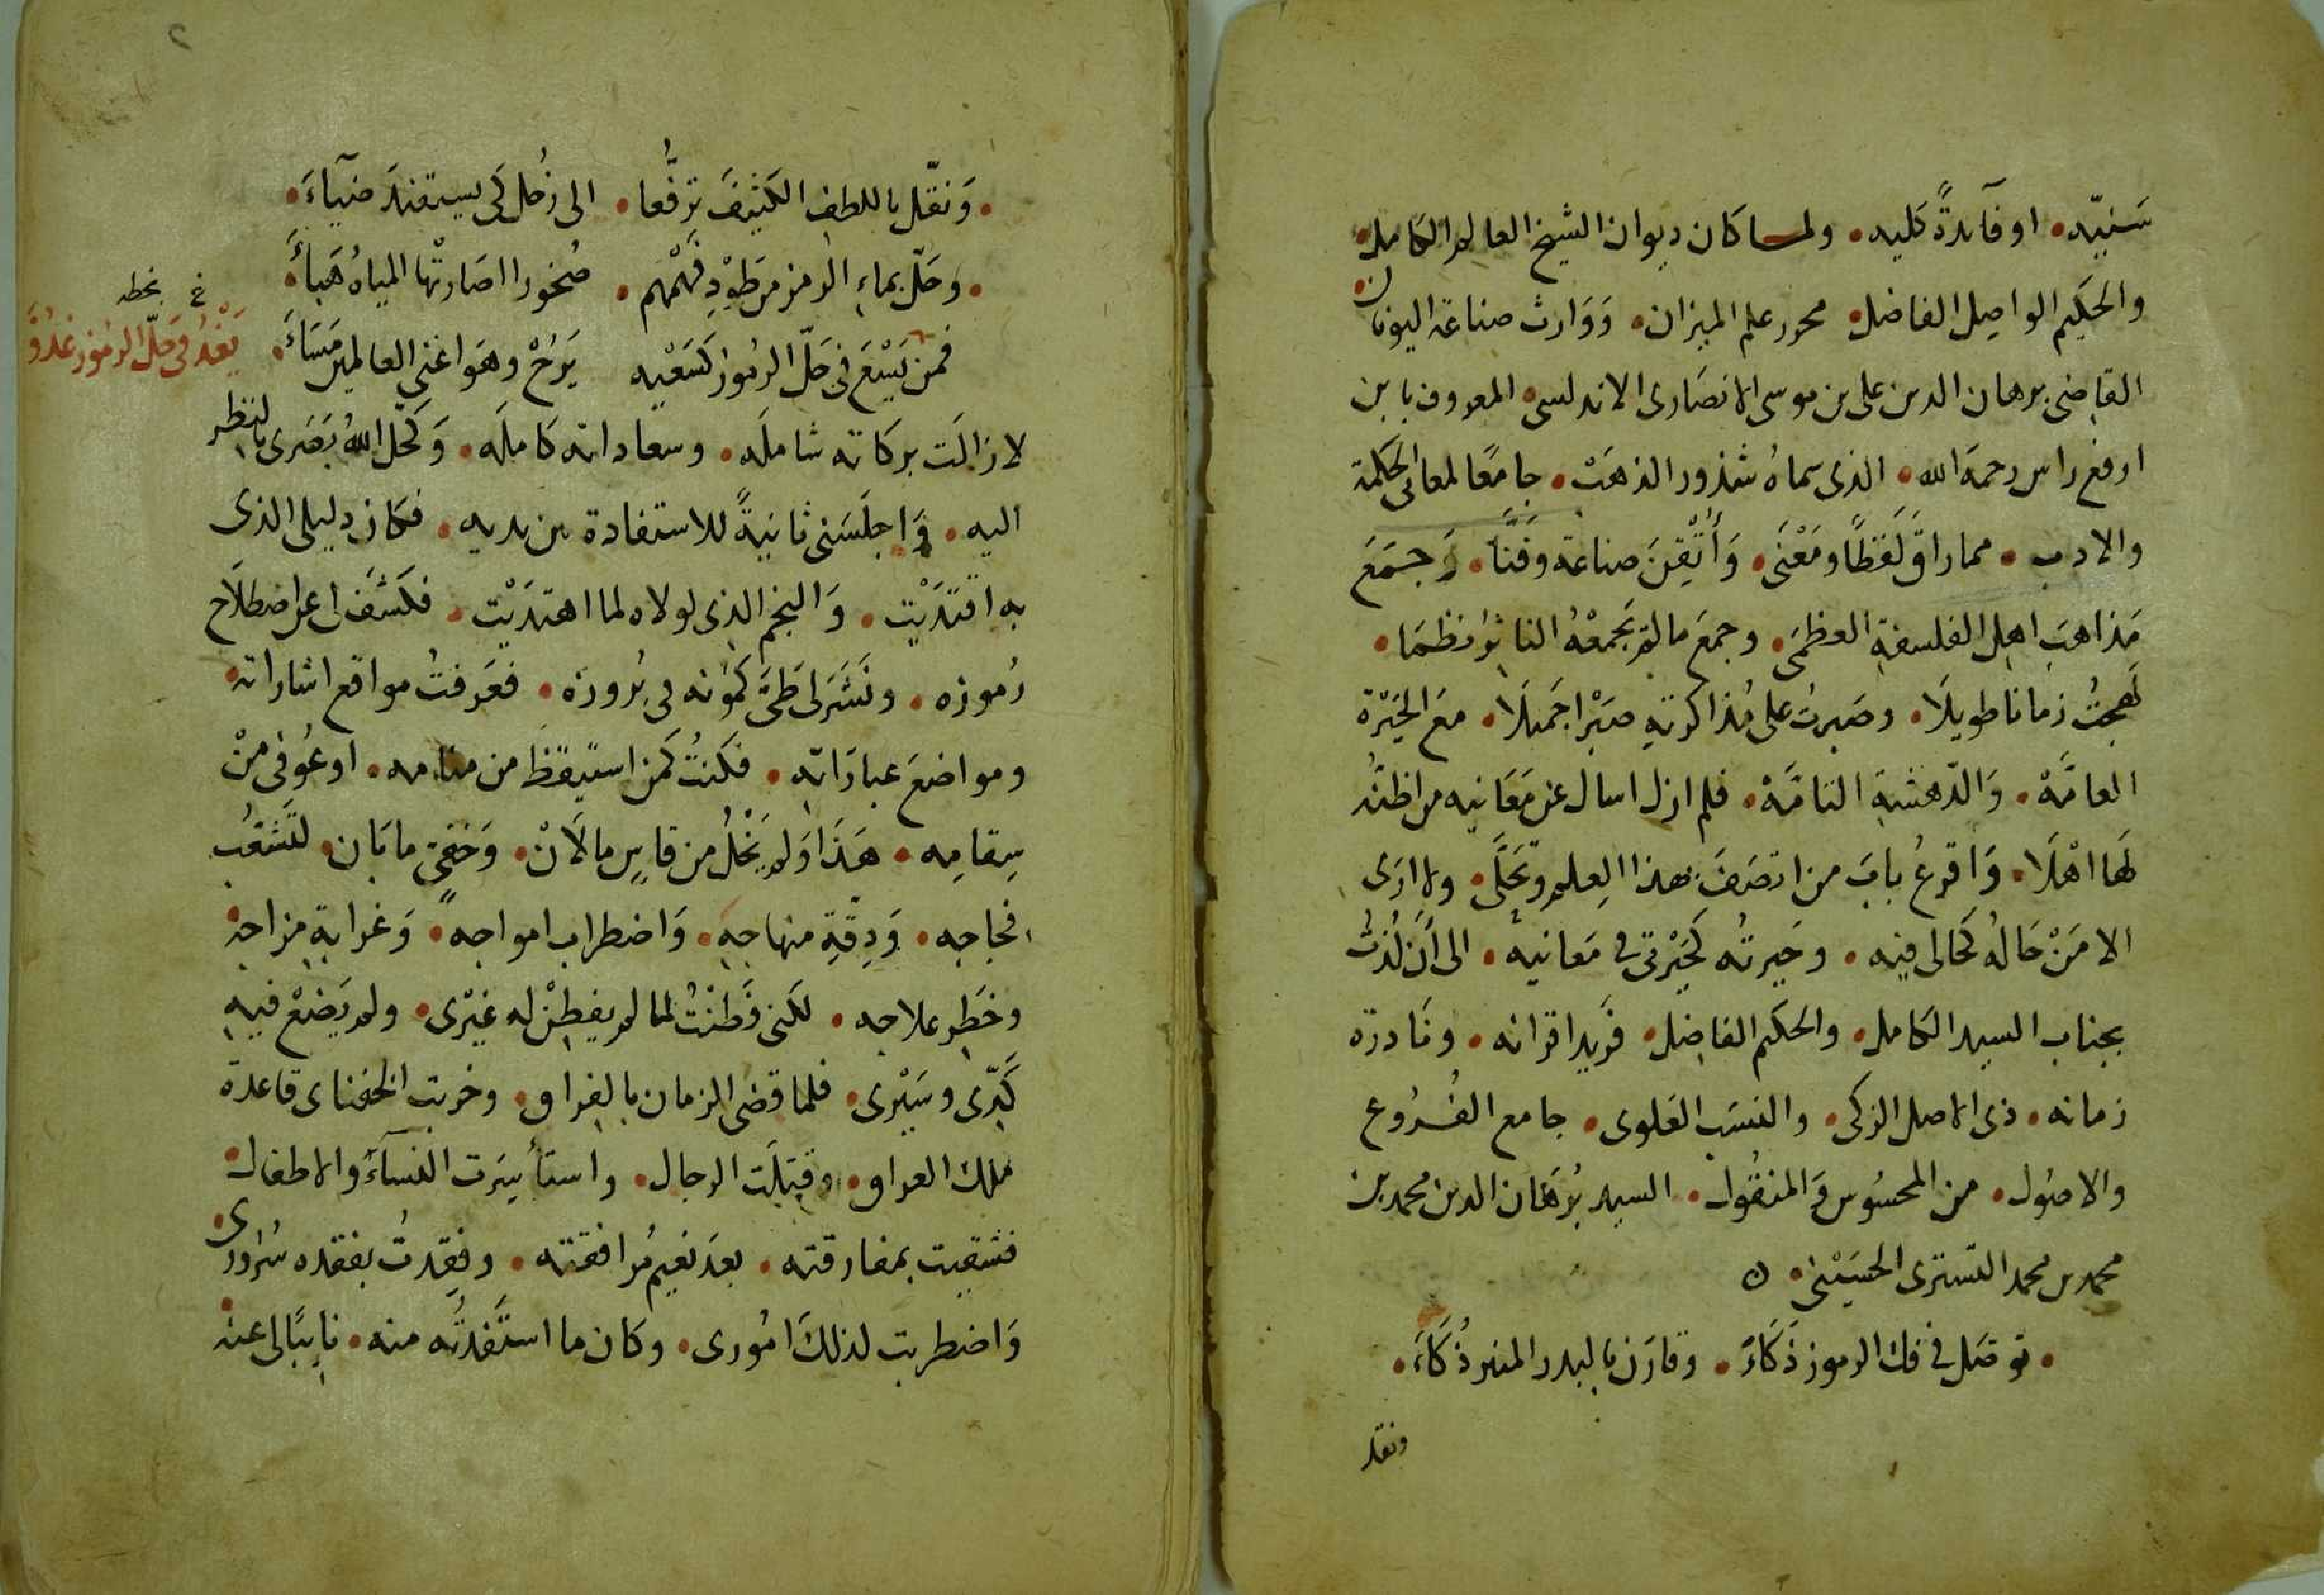 سَنيّه • او فآئدةً كليه • ولما كان ديوان الشيخ العالم الكامل •
والحكيم الواصل الفاضل • محرر علم الميزان • وَوَارث صناعة اليونان •
القاضى برهان الدين على بن موسى الانصَارى الاندلسى • المعروف بابن
ارفع راس رحمة الله • الذى سماهُ شذور الذهَبْ • جامعًا لمعانى الحكمة
والادب • مما راقَ لَفظًا ومَعْنَى • وَأُتْقِنَ صناعَة وفَنَّا • وَجمَعَ
مَذاهبَ اهل الفلسفة العظمَى • وجمعَ ما لم يَجمعْهُ الناثر نظمًا •
لَهجتُ زمانا طويلَا • وصَبرتُ على مُذاكرتهِ صَبْرا جَميلَا • معَ الحَيْرة
العامَّهْ • وَالدّهشة التامَّهْ • فلم ازل اسال عن مَعَانيه من اظنُّه
لهَا اهْلَا • وَاقرعُ بابَ من اتصَفَ بهذا العِلم وتحَلَّى • ولا ارَى
الا مَنْ حَالهُ كحَالى فيه • وحَيرتُه كحَيْرتى فى مَعَانيه • الى أَنْ لُذتُ
بجناب السيد الكامل • والحكيم الفاضل • فَريد اقرانه • ونَادرَة
زمانه • ذى الاصل الزكى • والنسَب العَلوى • جامع الفُروع
والاصُول • من المحسُوس وَالمنقُول • السيد بُرهَان الدين محمد بن
محمد بن محمد التسترى الحسَيْنى • ن
• توصَل فى فك الرموز ذَكَاءً • وقارَن بالبدر المنير ذُكَاءَ •
ونقل
• وَنقّل باللطف الكثيفَ ترفُّعا • الى زُحل كَى يستفيدَ ضيآءَ •
• وحَلّ بماءِ الرمز من طَوْدِ فَهْمهم • صُخورا اصَارتْها المياهُ هَباءً •
فمن يَسْعَ فى حَلّ الرمُوز كسَعْيه يَرُحْ وهوَ اغنى العالمين مَسَاءَ •
خ بخطه
يَغْدُ فى حَلّ الرموز غدُوَّ
لا زالَت بركَاته شاملَه • وسعاداته كَاملَه • وَكحّل اللهُ بَصَرى بالنظر
اليه • وَاجلَسَنى ثانيةً للاستفادة بين يديه • فكان دليلى الذى
به اقتدَيْت • وَالنجم الذى لولاه لما اهتدَيْت • فكشَف لى عن اصطلَاح
رُموزه • ونَشَر لى طَىَّ كمُونه فى بُروزه • فعَرفتُ مواقع اشاراته •
ومواضعَ عبارَاته • فكنتُ كمن استيقظَ من منامه • او عُوفى منْ
سِقامِه • هَذَا وَلم يَخْلُ من قاسٍ ما لَانْ • وَخفىّ ما بَان • لتَشعّب
فجاجه • وَدِقّةِ منهاجه • وَاضطراب امواجه • وَغرابةِ مزاجه •
وخَطِر علاجه • لكنى فَطنْتُ لما لم يفطِنْ له غيْرى • ولم يَضعْ فيهِ
كَدّى وسَيْرى • فلما قضى الزمان بالفراق • وخربت قاعدة
ملك العراق • وقتلَت الرجال • واستأسِرَت النسآءُ والاطفال •
فشقيت بمفارقته • بعدَ نَعيم مُرافقته • وفقِدتُ بفقده سُرورى •
وَاضطربت لذلكَ امُورى • وكان ما استَفدتُه منه • نايبًا لى عنه •